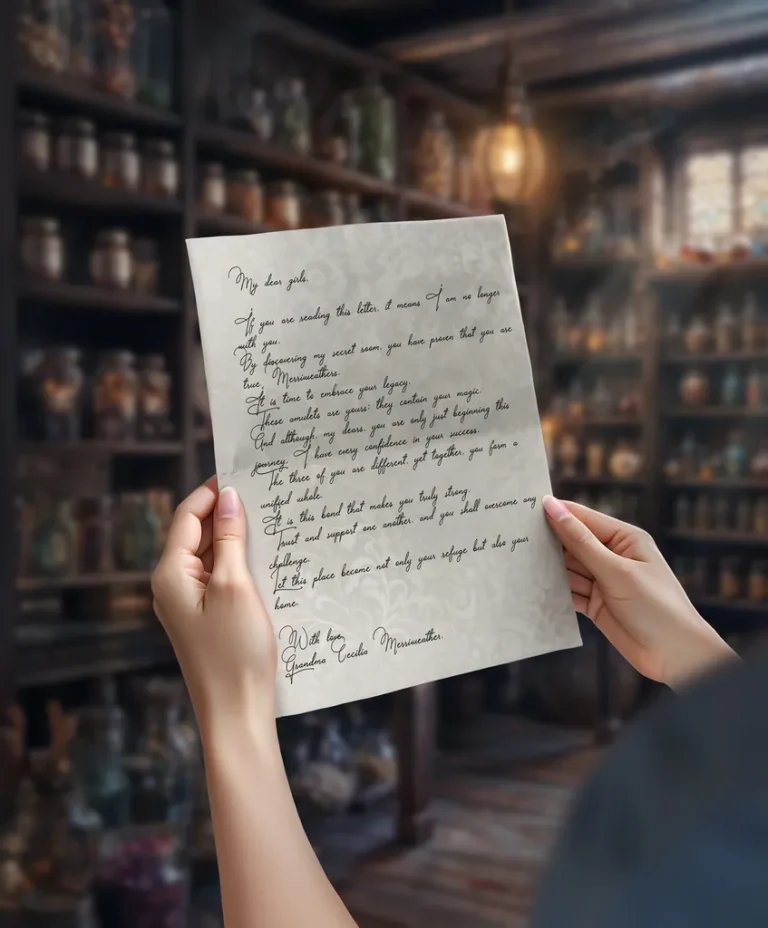 My dear girls,
If you are reading this letter, it means I am no longer
with you.
By discovering my secret room, you have proven that you are
true Merriweathers.
It is time to embrace your legacy.
These amulets are yours; they contain your magic.
And although, my dears, you are only just beginning this
journey, I have every confidence in your success.
The three of you are different, yet together, you form a
unified whole.
It is this bond that makes you truly strong.
Trust and support one another, and you shall overcome any
challenge.
Let this place become not only your refuge but also your
home.
With love,
Grandma Cecilia Merriweather.